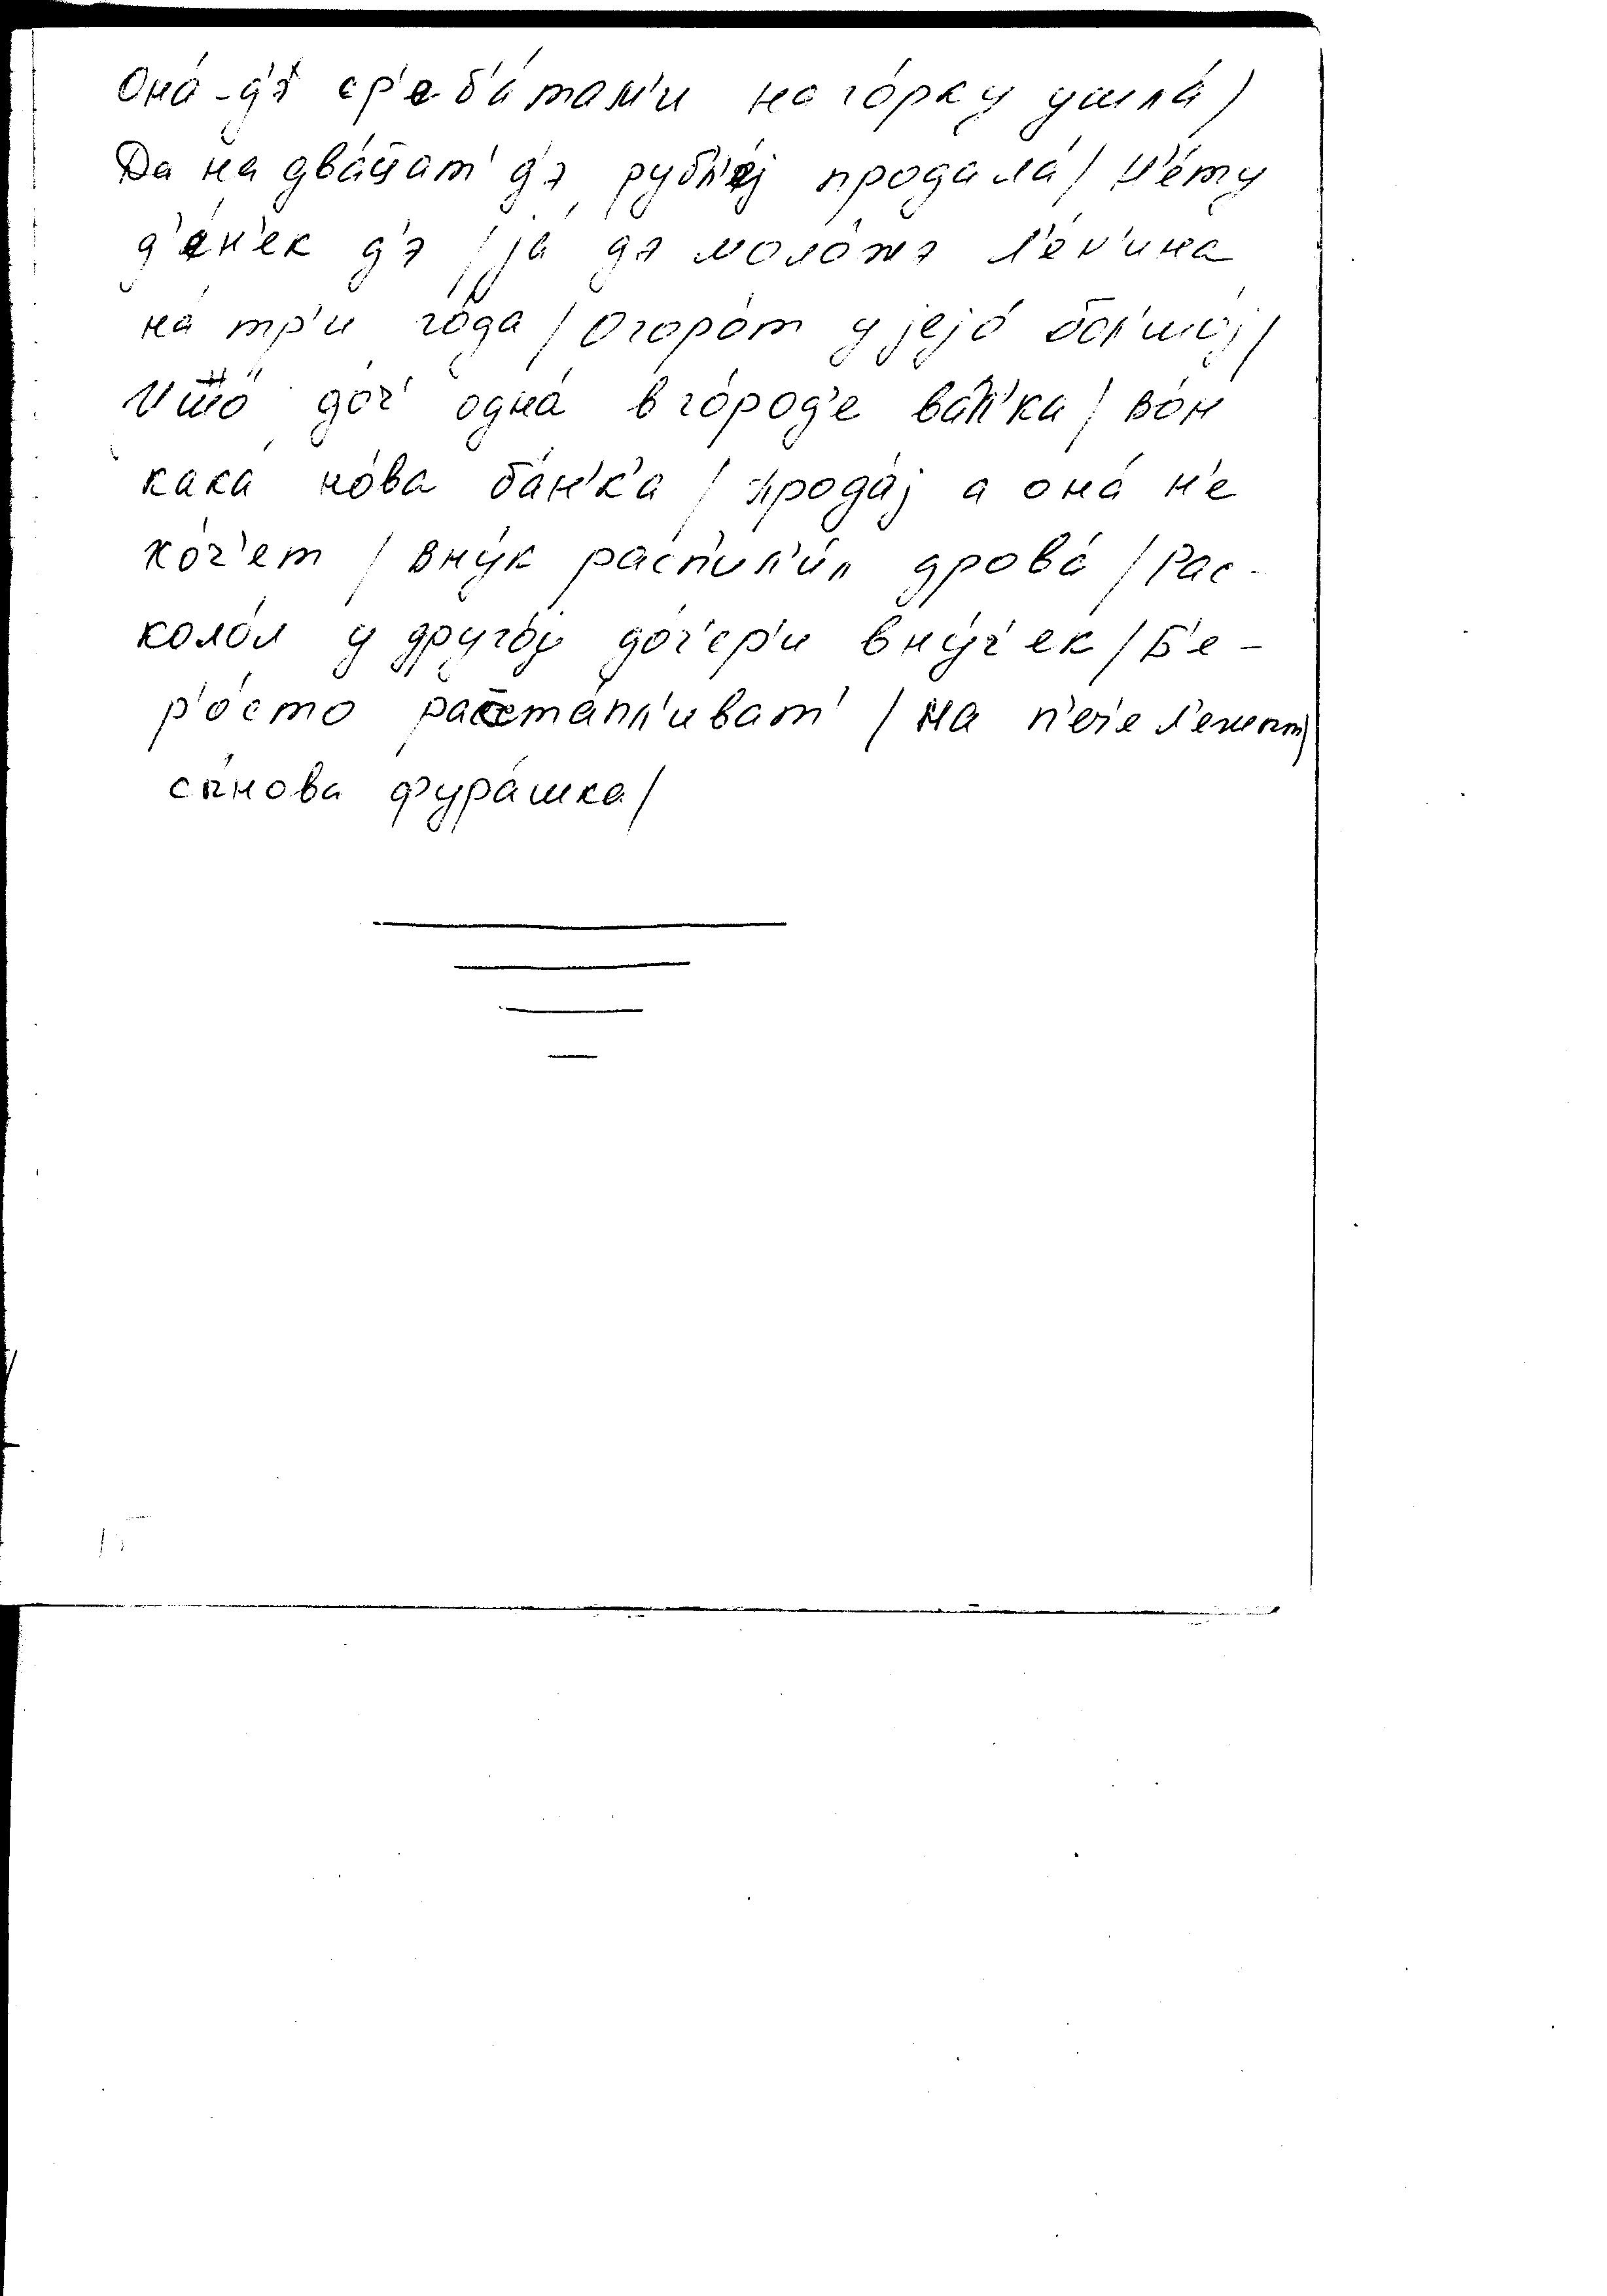 Она́-д'э ср'еб'а́там'и на го́рку ушла́/
Да на два́цат' д'э рубл'е́j продала́/ Н'е́ту
д'е́н'ек д'э /jа́ дэ моло́жэ Л'е́н'ина
на́ тр'и го́да/Огоро́т у jеjо́ бол'шо́j/
И што́ до́ч' одна́ в го́род'е ва́л'ка/ во́н
кака́ но́ва ба́н'к'а / прода́j а она́ н'е
хо́ч'ет / вну́к расп'ил'и́л дрова́ /Рас-
коло́л у друго́j до́ч'ер'и вну́ч'ек/Б'е-
р'о́сто раста́пл'иват' / на п'еч'е л'ежит/
сы́нова фура́шка/